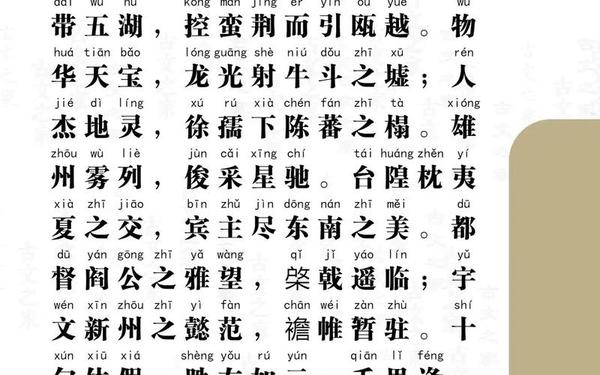 带五湖，控蛮荆而引瓯越。物
huá tiān bǎo lóng guāng shè niú dǒu zhī xū rén
华天宝，龙光射牛斗之墟；人
jié dì líng xú rú xià chén fán zhī tà xióng
杰地灵，徐孺下陈蕃之榻。雄
zhōu wù liè jùn cǎi xīng chí tái huáng zhěn yí
州雾列，俊采星驰。台隍枕夷
xià zhī jiāo bīn zhǔ jìn dōng nán zhī měi dū
夏之交，宾主尽东南之美。都
dū yán gōng zhī yǎ wàng qǐ jǐ yáo lín yǔ
督阎公之雅望，棨戟遥临；宇
wén xīn zhōu zhī yì fàn chān wéi zàn zhù shí
文新州之懿范，襜帷暂驻。十
xún xiū xiá shèng yǒu rú yún qiān lǐ féng